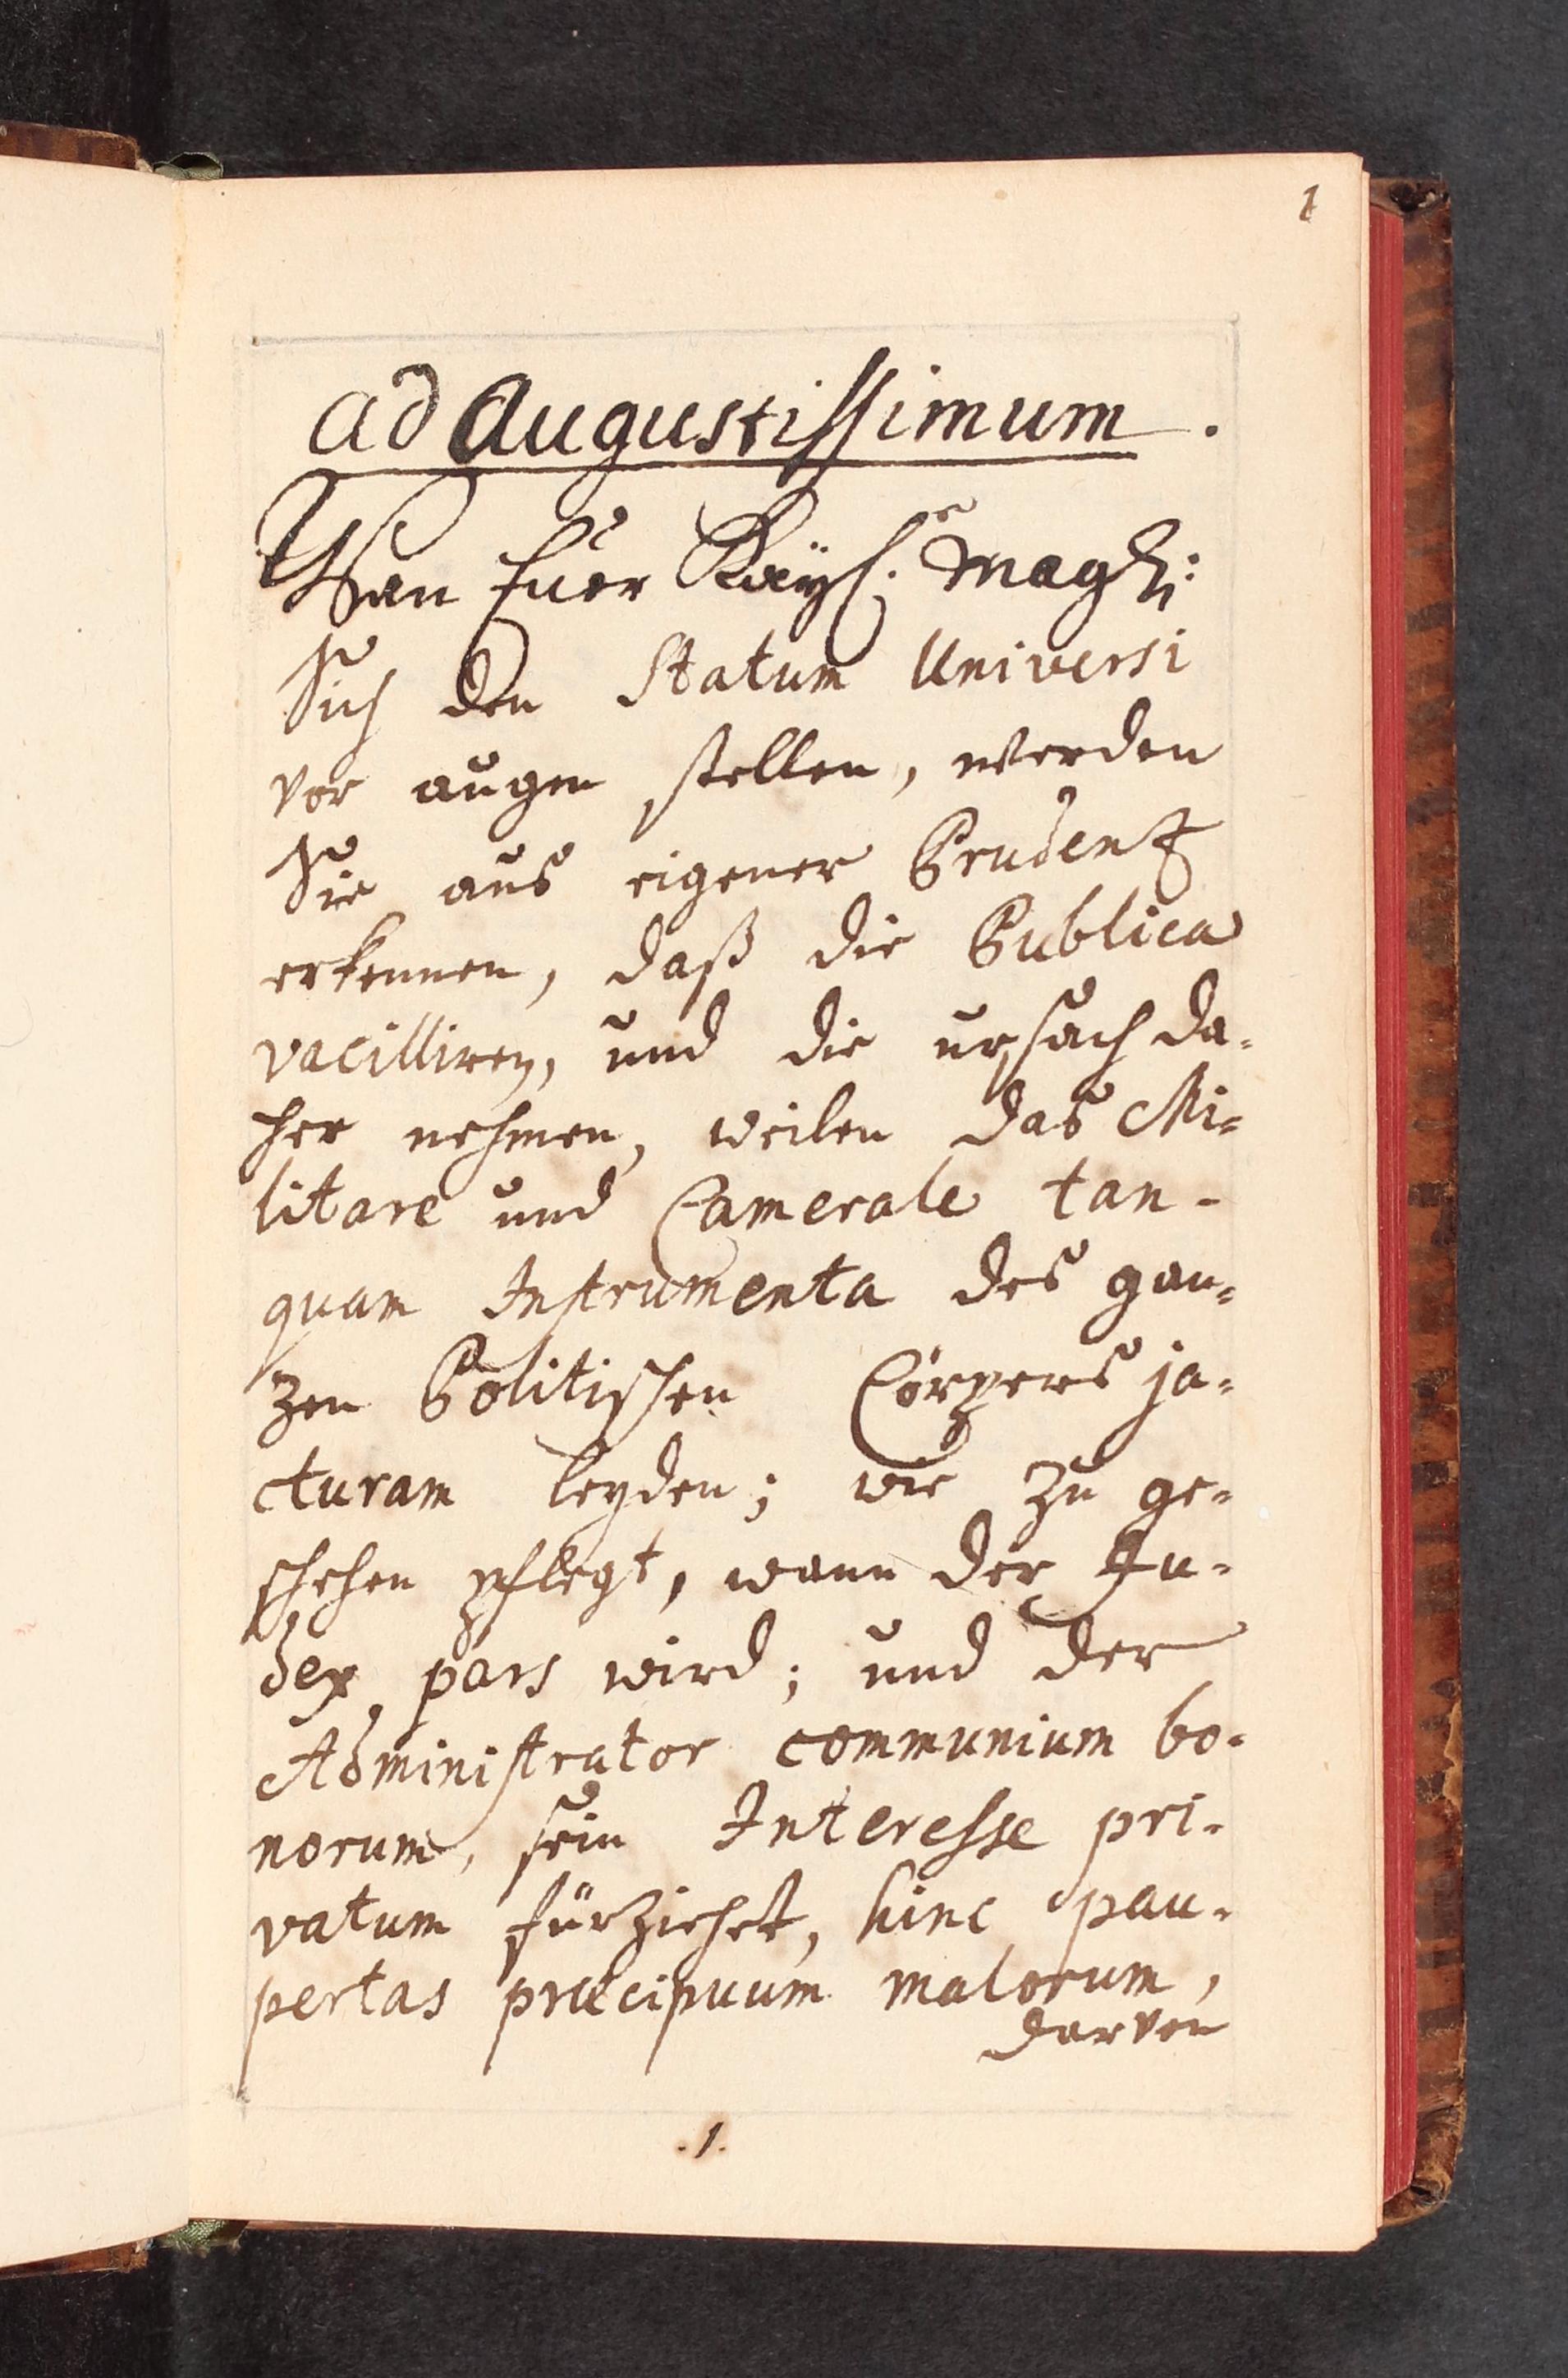 1
ad Augustissimum.
Wan Euer Kayß.e Mag
Sich den Statum Universi
vor augen stellen, werden
Sie aus eigener Prudenz
erkennen, daß die Publica
vacilliren, und die ursach da-
her nehmen, weilen das Mi-
litare und Camerale tan-
quam Instrumenta des gan-
zen Politischen Cörpers ja-
cturam leyden; wie zu ge-
schehen pflegt, wann der Ju-
dex pars wird; und der
Administrator communium bo-
norum, sein Interesse pri-
vatum fürziehet, hinc pau-
pertas præcipuum malorum,
darvon
.1.